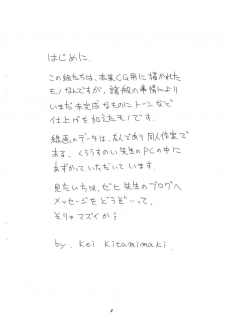 はじめに.
この絵たちは、本来CG用に描かれた
モノなんですが、諸般の事情により
いまだ未完成なものにトーンなど
仕上げを加えたモノです。
線画のデータは、友人であり同人作家で
ある、くろうすのい先生のPCの中に
あずかっていただいています.
見たい方は、ゼヒ先生のブログへ
メッセージをどうぞっって、
そりゃマズイか!
by. Kei Kitamimaki.